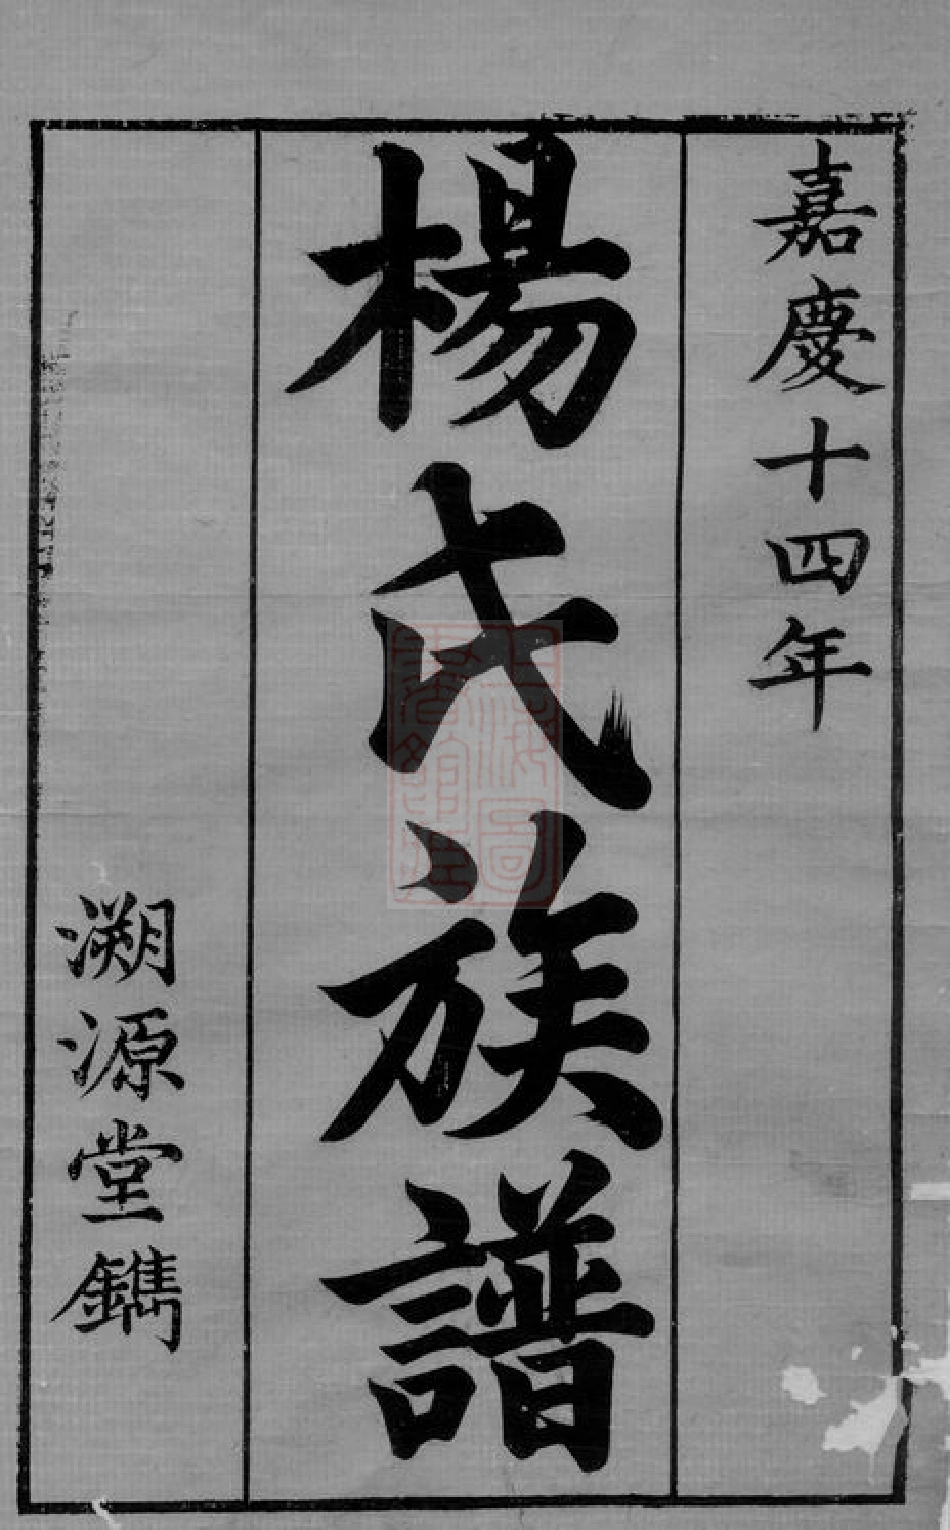 嘉慶十四年
楊氏族譜
溯源堂鐫